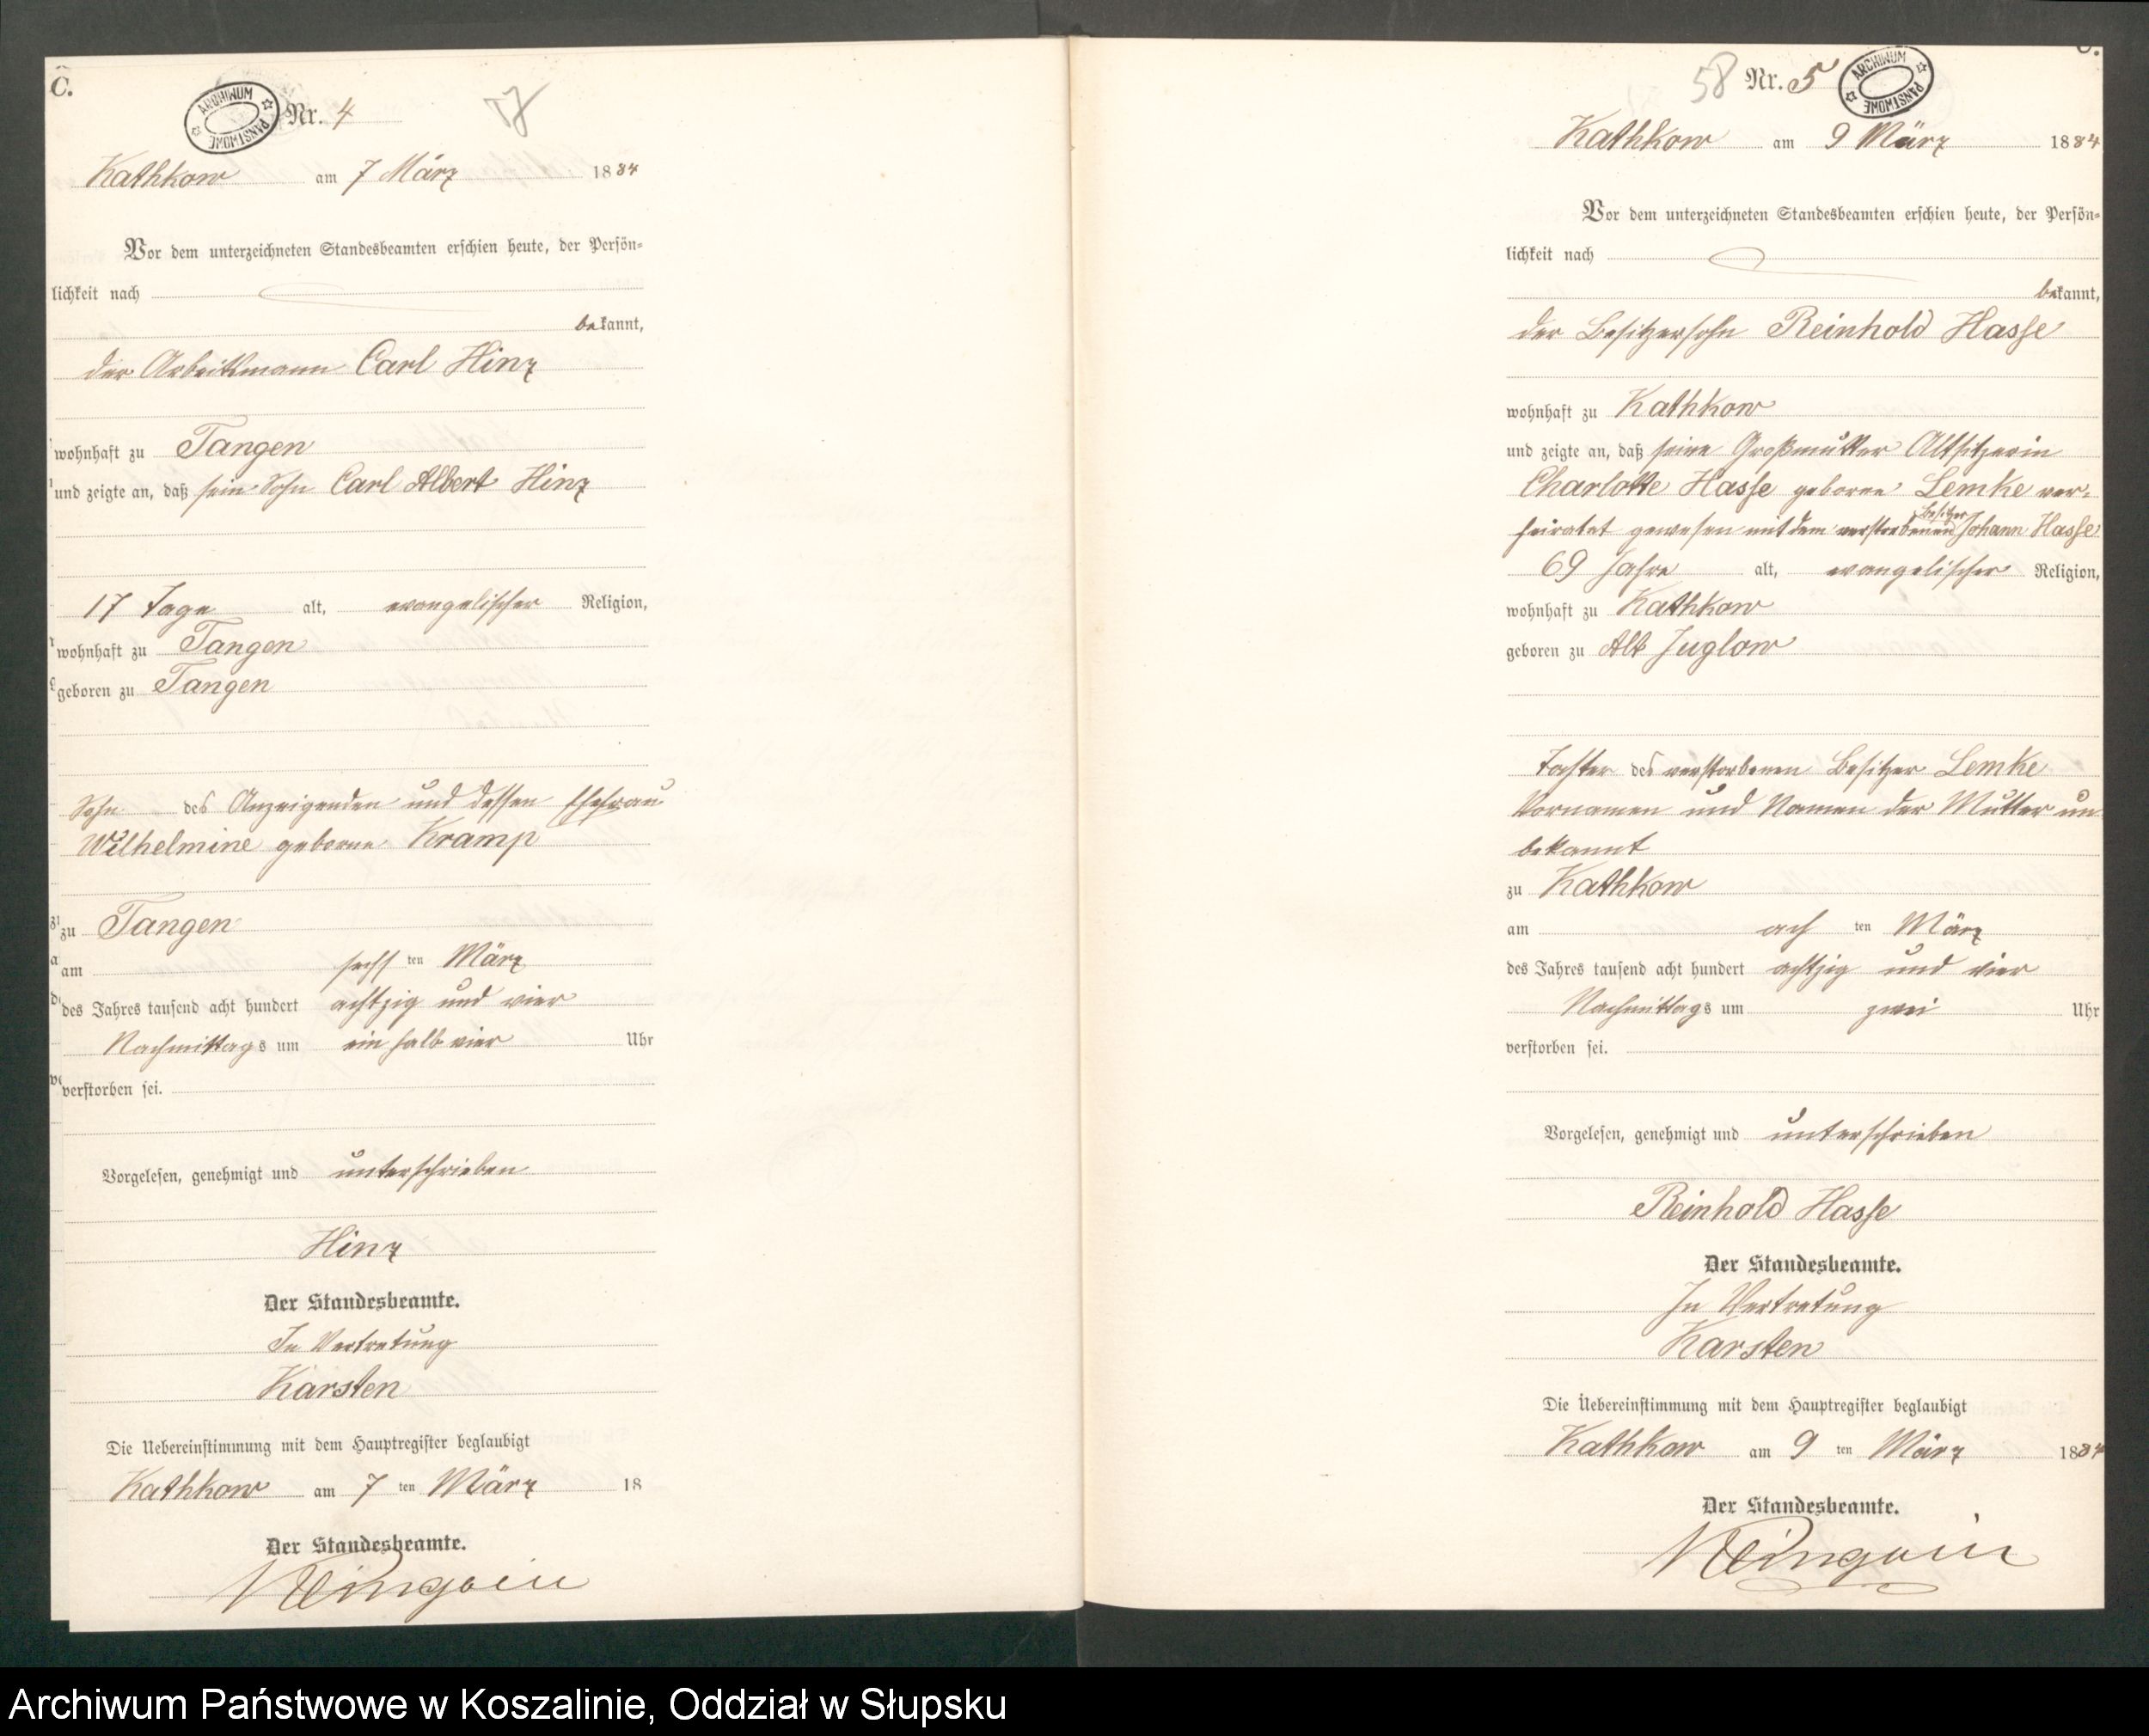 C.
ARCHIWUM PAŃSTWOWE
Nr. 4
57
Kathkow am 7 März 1884
Vor dem unterzeichneten Standesbeamten erschien heute, der Persön-
lichkeit nach
bekannt,
der Arbeitsmann Carl Hinz
wohnhaft zu Tangen
und zeigte an, daß sein Sohn Carl Albert Hinz
17 Tage alt, evangelischer Religion,
wohnhaft zu Tangen
geboren zu Tangen
Sohn des Anzeigenden und dessen Ehefrau
Wilhelmine geborne Kramp
zu Tangen
am sechsten März
des Jahres tausend acht hundert achtzig und vier
Nachmittags um ein halb vier Uhr
verstorben sei.
Vorgelesen, genehmigt und unterschrieben
Hinz
Der Standesbeamte.
In Vertretung
Karsten
Die Uebereinstimmung mit dem Hauptregister beglaubigt
Kathkow am 7 ten März 18
Der Standesbeamte.
58 Nr. 5
ARCHIWUM PAŃSTWOWE
Kathkow am 9 März 1884
Vor dem unterzeichneten Standesbeamten erschien heute, der Persön-
lichkeit nach
bekannt,
der Besitzersohn Reinhold Hasse
wohnhaft zu Kathkow
und zeigte an, daß seine Großmutter Altsitzerin
Charlotte Hasse geborne Lemke ver-
heiratet gewesen mit dem verstorbenen Besitzer Johann Hasse
69 Jahre alt, evangelischer Religion,
wohnhaft zu Kathkow
geboren zu Alt Juglow
Tochter des verstorbenen Besitzer Lemke
Vornamen und Namen der Mutter un
bekannt
zu Kathkow
am ach ten März
des Jahres tausend acht hundert achtzig und vier
Nachmittags um zwei Uhr
verstorben sei.
Vorgelesen, genehmigt und unterschrieben
Reinhold Hasse
Der Standesbeamte.
In Vertretung
Karsten
Die Uebereinstimmung mit dem Hauptregister beglaubigt
Kathkow am 9 ten März 1884
Der Standesbeamte.
Archiwum Państwowe w Koszalinie, Oddział w Słupsku